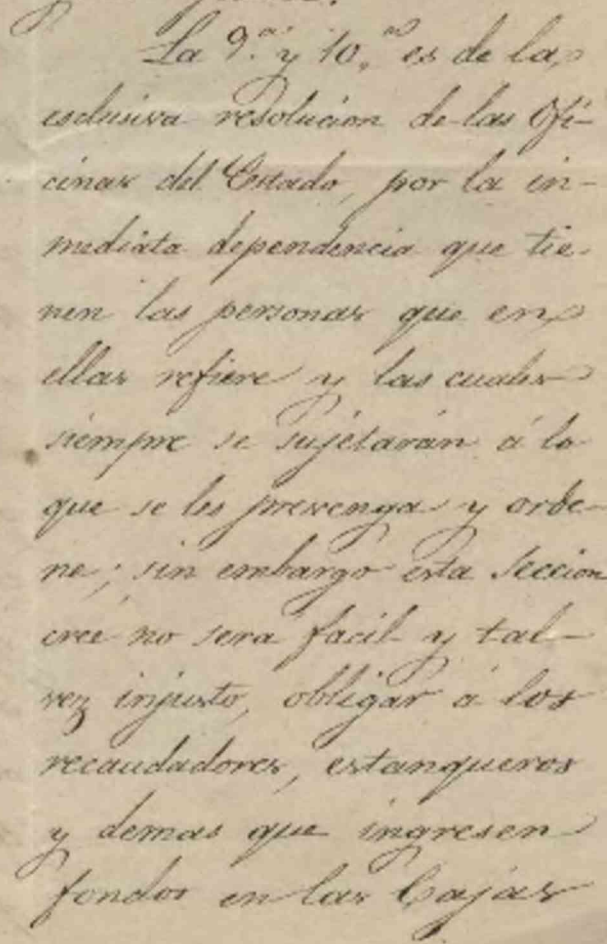 La 9.ª y 10.ª es de la
esclusiva resolucion de las Ofi-
cinas del Estado, por la in-
mediata dependencia que tie-
nen las personas que en
ellas refiere y las cuales
siempre se sujetarán á lo
que se les prevenga y orde-
ne; sin embargo esta Seccion
cree no será facil y tal-
vez injusto, obligar á los
recaudadores, estanqueros
y demas que ingresen
fondos en las Cajas